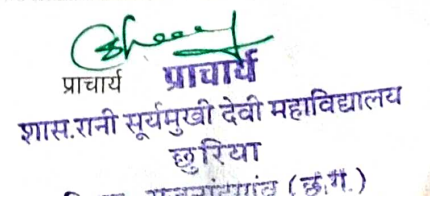 प्राचार्य प्राचार्य
शास.रानी सूर्यमुखी देवी महाविद्यालय
छुरिया
(छ.ग.)